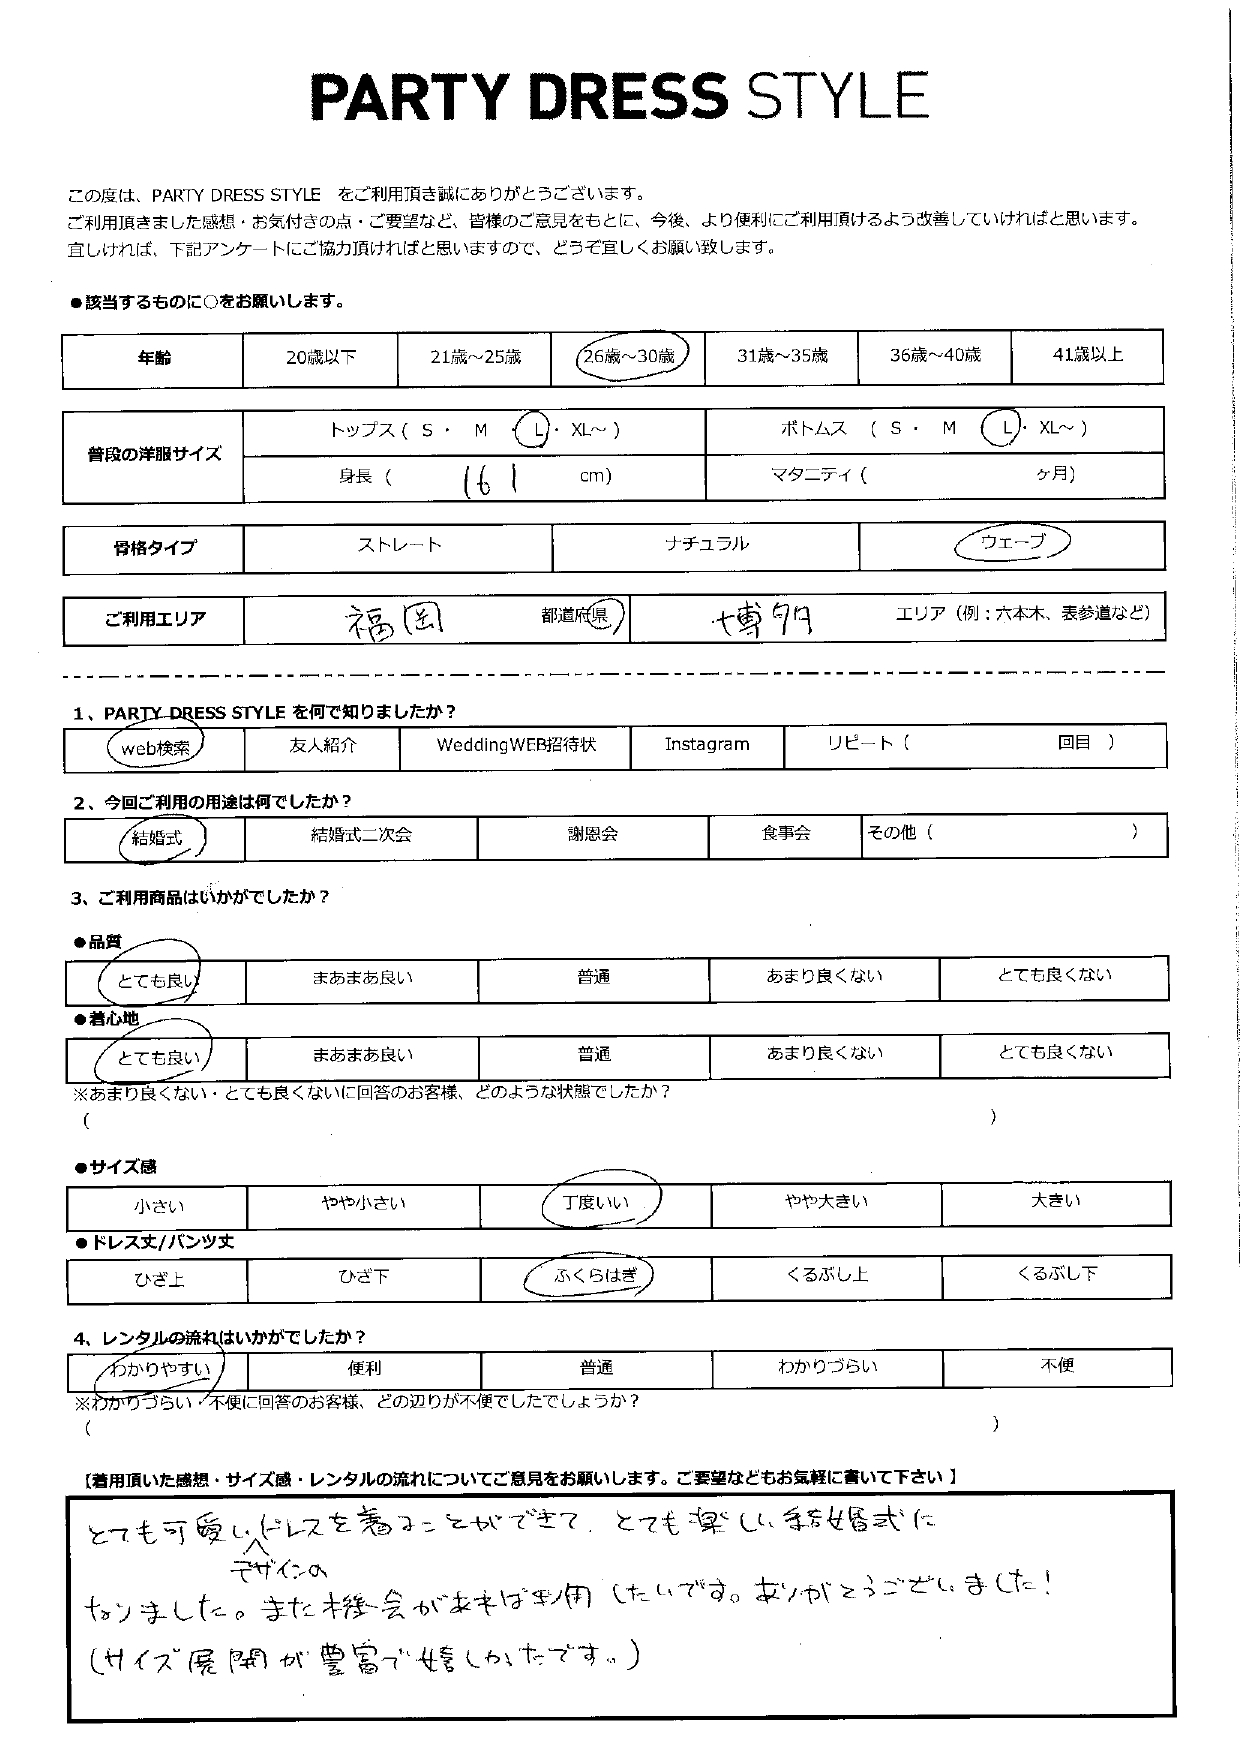 PARTY DRESS STYLE
この度は、PARTY DRESS STYLE をご利用頂き誠にありがとうございます。
ご利用頂きました感想・お気付きの点・ご要望など、皆様のご意見をもとに、今後、より便利にご利用頂けるよう改善していければと思います。
宜しければ、下記アンケートにご協力頂ければと思いますので、どうぞ宜しくお願い致します。
●該当するものに○をお願いします。
年齢 20歳以下 21歳～25歳 26歳～30歳 31歳～35歳 36歳～40歳 41歳以上
普段の洋服サイズ
トップス ( S ・ M ・ L ・ XL～ ) ボトムス ( S ・ M ・ L ・ XL～ )
身長 ( 161 cm) マタニティ ( ヶ月)
骨格タイプ ストレート ナチュラル ウェーブ
ご利用エリア 福岡 都道府県 博多 エリア（例：六本木、表参道など）
1、PARTY DRESS STYLE を何で知りましたか？
web検索 友人紹介 WeddingWEB招待状 Instagram リピート ( 回目 )
2、今回ご利用の用途は何でしたか？
結婚式 結婚式二次会 謝恩会 食事会 その他 ( )
3、ご利用商品はいかがでしたか？
●品質
とても良い まあまあ良い 普通 あまり良くない とても良くない
●着心地
とても良い まあまあ良い 普通 あまり良くない とても良くない
※あまり良くない・とても良くないに回答のお客様、どのような状態でしたか？
( )
●サイズ感
小さい やや小さい 丁度いい やや大きい 大きい
●ドレス丈/パンツ丈
ひざ上 ひざ下 ふくらはぎ くるぶし上 くるぶし下
4、レンタルの流れはいかがでしたか？
わかりやすい 便利 普通 わかりづらい 不便
※わかりづらい・不便に回答のお客様、どの辺りが不便でしたでしょうか？
( )
【着用頂いた感想・サイズ感・レンタルの流れについてご意見をお願いします。ご要望などもお気軽に書いて下さい 】
とても可愛いドレスを着ることができて、とても楽しい結婚式に
デザインの
なりました。また機会があれば利用したいです。ありがとうございました！
(サイズ展開が豊富で嬉しかたです。)